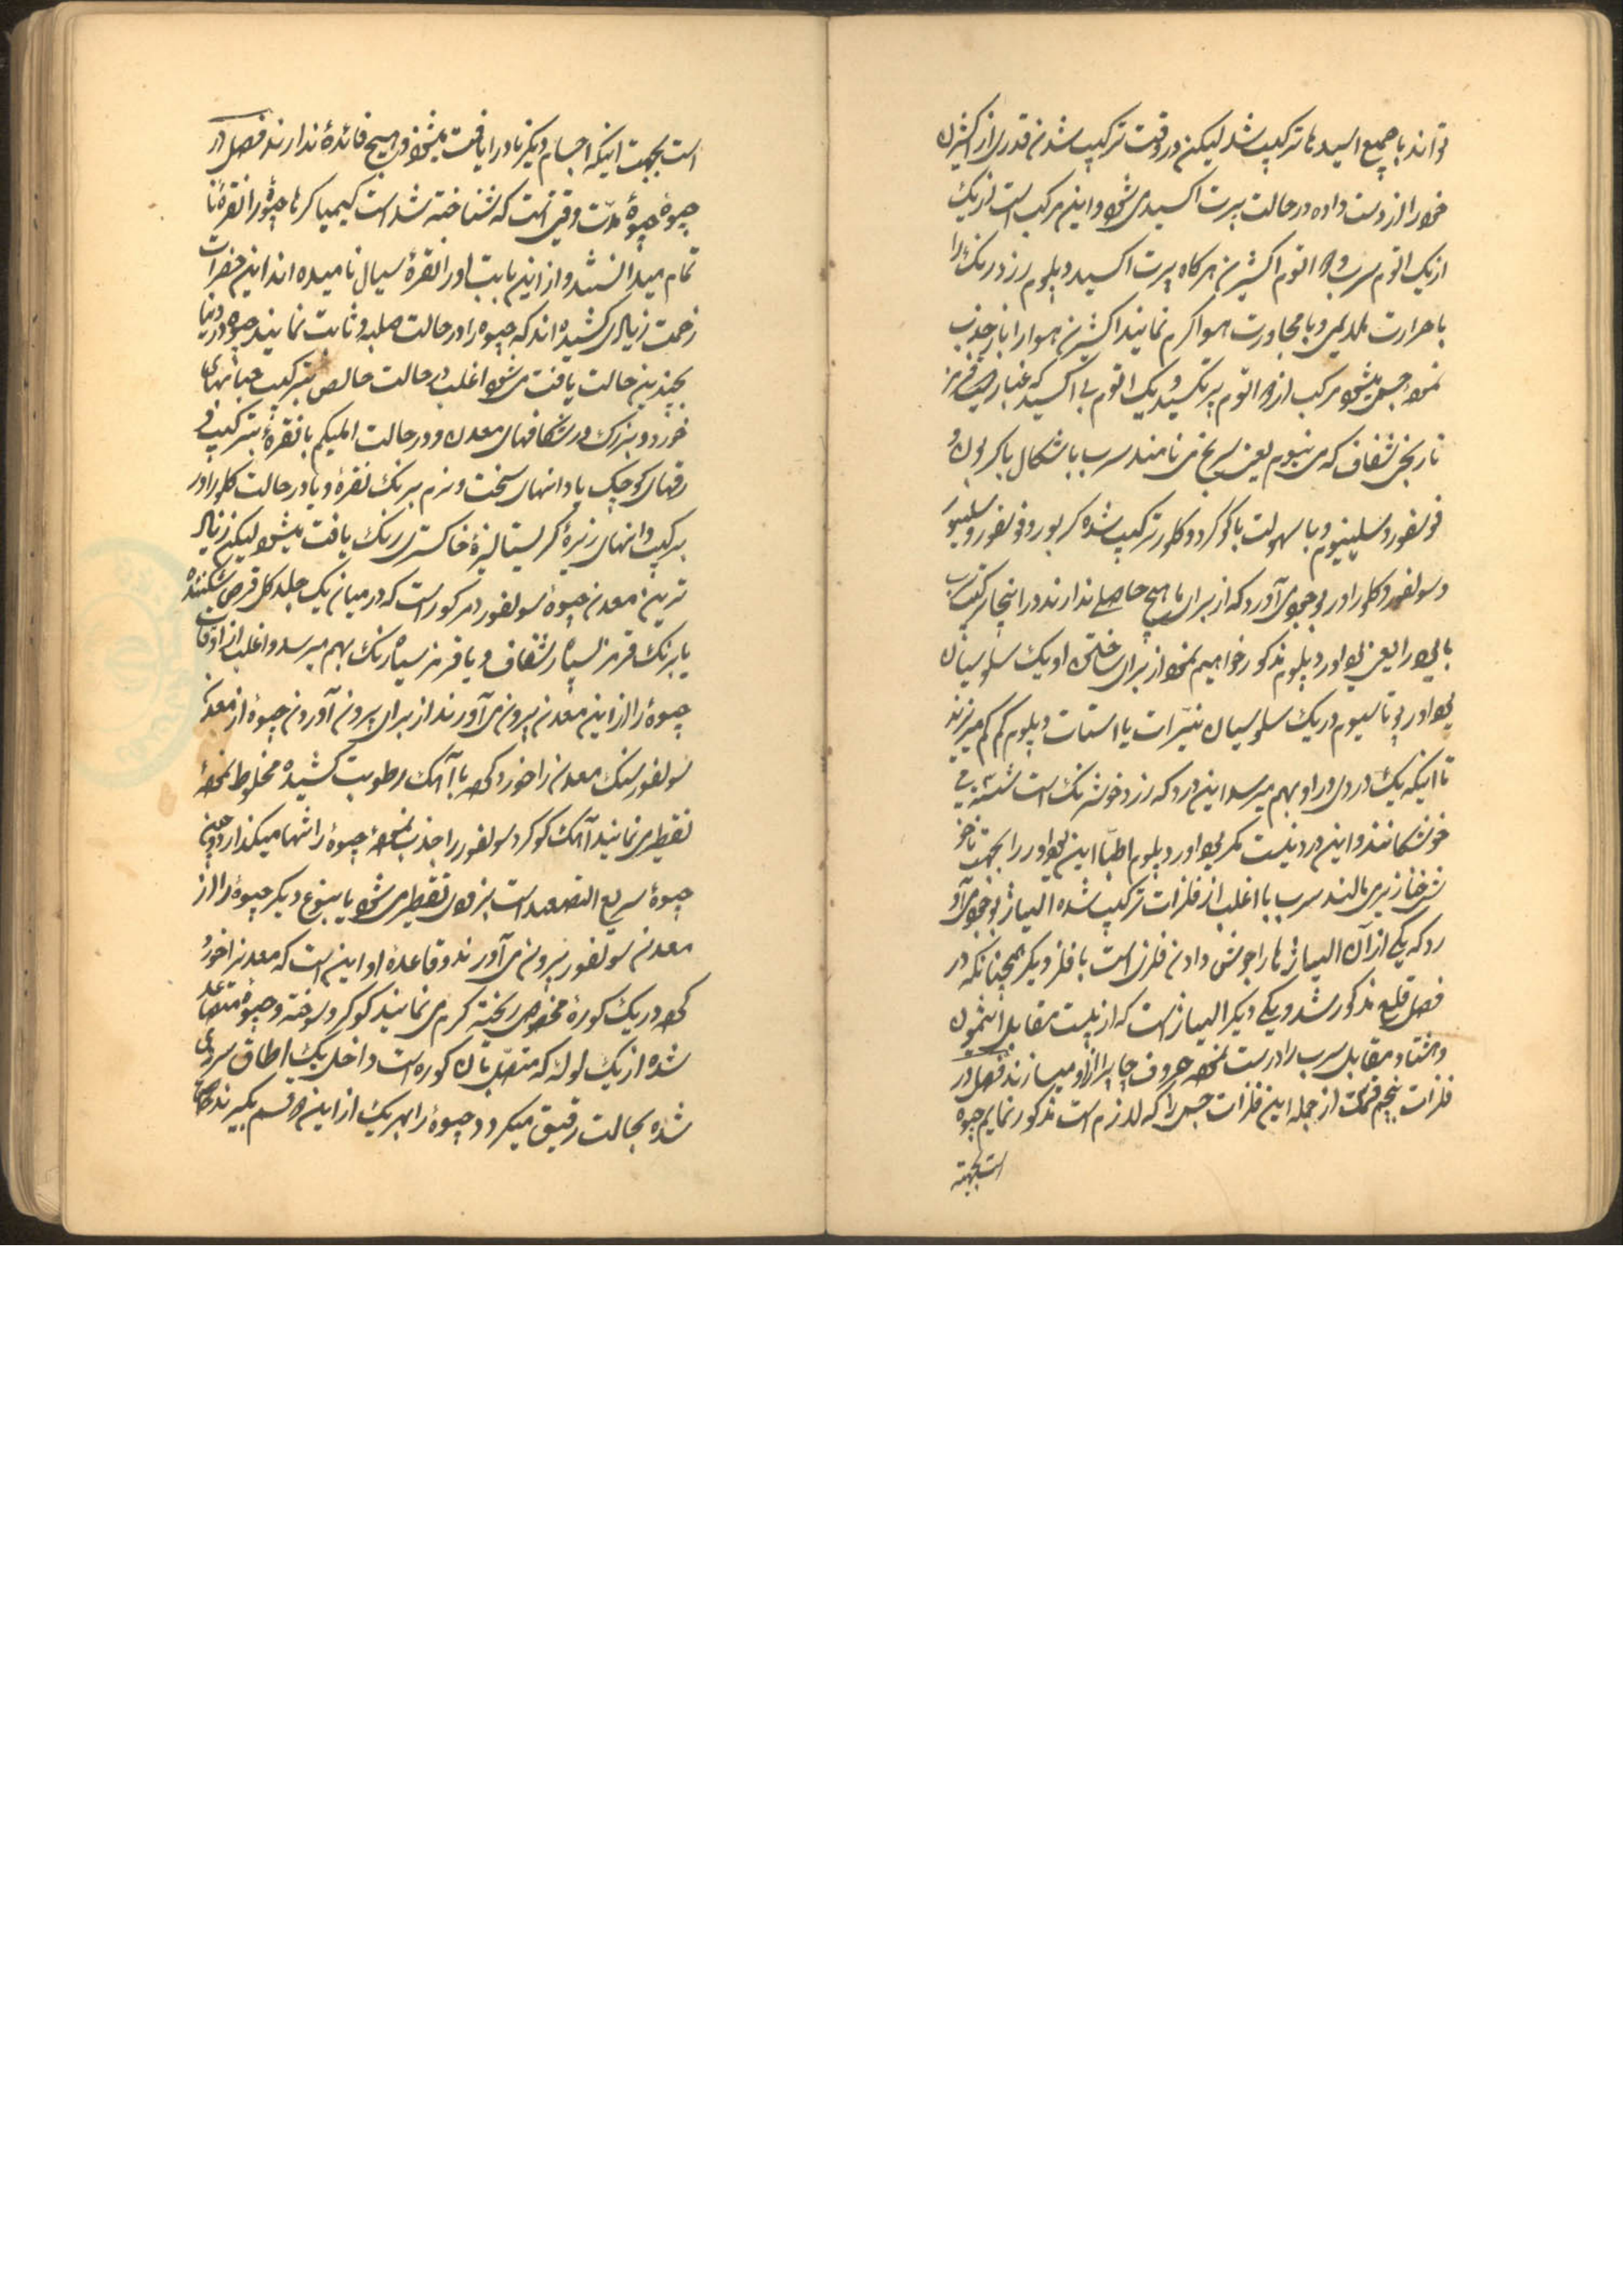 تواند با جمیع اسیدها ترکیب شد لیکن در وقت ترکیب شدن قدری از اکثیژن
خود را از دست داده در حالت پرت اکسید می شود و این مرکب است از یک
از یک اتوم سرب و دو اتوم اکثیژن هرکاه پرت اکسید دپلوم زرد رنک را
با حرارت ملایمی و با مجاورت هوا کرم نمایند اکثیژن هوا را باز جذب
نموده جسمی میشود مرکب از دو اتوم پرتکسید و یک اتوم بی اکسید که غبار قرمز
نارنجی شفاف که مینیوم یعنی سرنج می نامند سرب با اشکال با کربون و
فوسفور و سلینیوم و با سهولت با کوکرد و کلور ترکیب شده کربور و فوسفور و سلینیور
و سولفور و کلورادر بوجود می آورد که از برای ما هیچ حاصلی ندارند در اینجا ترکیب سرب
با یود را یعنی یوادور دپلوم مذکور خواهیم نمود از برای ساختن او یک سلوسیان
یوادور پوتاسیوم در یک سلوسیان نیترات یا استات دپلوم کم کم میریزند
تا اینکه یک دردی در او بهم میرسد این درد که زرد خوش رنک است شسته می
خوشکانند و این درد نیست مکر یوادور دپلوم اطبا این یوادور را بجهت ناخو
شی خنازیری مالند سرب با اغلب از فلزات ترکیب شده الیاژ بوجود می آو
رد که یکی از آن الیاژها را جوش دادن فلزی است با فلز دیکر همچنانکه در
فصل قلع مذکور شد و یکی دیکر الیاژ است که از بیست مقابل انتیمون
و هشتاد مقابل سرب را درست نموده حروف چاپ را از او میسازند فصل در
فلزات پنجم قسمت از جمله این فلزات جسمی را که لازم است مذکور نمایم جیوه
است بجهته
است بجهت اینکه اجسام دیکر نادرا یافت میشود و هیچ فائدهٔ ندارند فصل در
جیوهٔ جیوهٔ مدت وقتی است که شناخته شد است کیمیاکرها جیوه را نقرهٔ نا
تمام میدانستند و از این بابت او را نقرهٔ سیال نامیده اند این حضرات
زحمت زیادی کشیده اند که جیوه را در حالت صلبه و ثابت نمایند جیوه در دنیا
بچندین حالت یافت می شود اغلب در حالت خالص بترکیب حبابهای
خورد و بزرک در شکافهای معدن و در حالت املکم با نقرهٔ بترکیب و
رقهای کوچک یا دانهای سخت و نرم برنک نقرهٔ و یا در حالت کلورادر
بترکیب دانهای ریزهٔ کریستالیزهٔ خاکستری رنک یافت میشود لیکن زیاد
ترین معدن جیوهٔ سولفور دمرکور است که در میان یک جلد کل قرص شکننده
یا برنک قرمز سیاه شفاف و یا قرمز سیاه رنک بهم میرسد و اغلب از اوقات
جیوهٔ را از این معدن بیرون می آورند از برای بیرون آوردن جیوهٔ از معدن
سولفور سنک معدن را خورد کرده با آهک رطوبت کشیده مخلوط نموده
تقطیر می نمایند آهک کوکرد سولفور را جذب نموده جیوهٔ را تنها میکذارد و چون
جیوهٔ سریع التصعد است بزودی تقطیر می شود یا بنوع دیکر جیوهٔ را از
معدن سولفور بیرون می آورند و قاعدهٔ او این است که معدن را خورد
کرده در یک کورهٔ مخصوص ریخته کرم می نمایند کوکرد سوخته و جیوهٔ متصاعد
شده از یک لوله که متصل بآن کوره است داخل یک اطاق سردی
شده بحالت رقیق میکردد جیوهٔ را بهر یک از این دو قسم بکیرند خالص